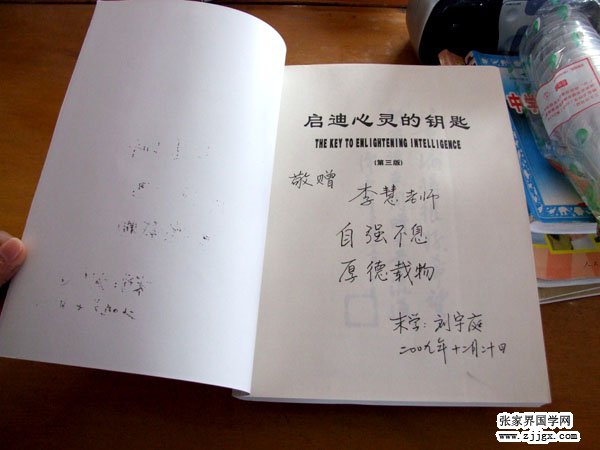 启迪心灵的钥匙
THE KEY TO ENLIGHTENING INTELLIGENCE
(第三版)
敬赠
李慧老师
自强不息
厚德载物
末学:刘宇庭
二00九年十二月二十日
中学
张家界国学网
www.zjjgx.com